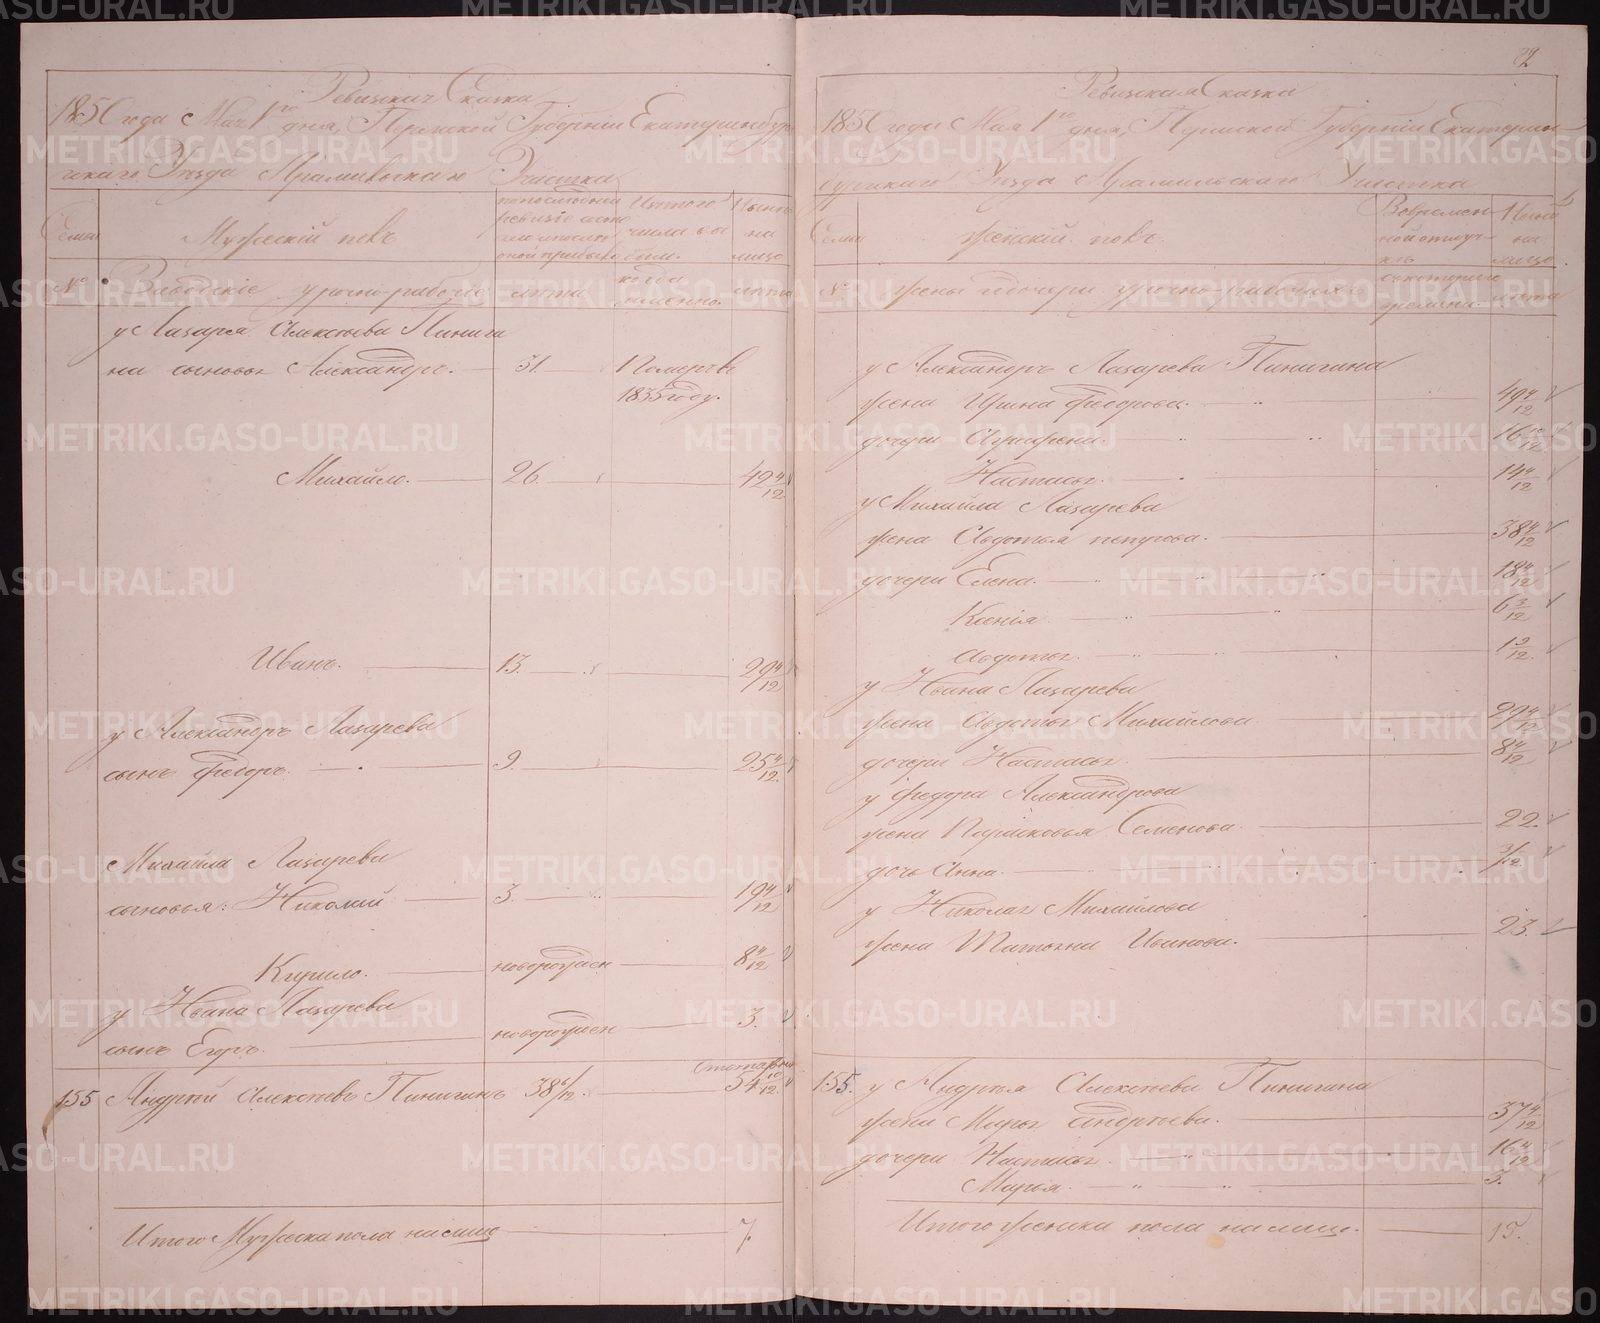 82
Ревизская Сказка
1850 года Мая 1го дня, Пермской Губернии Екатеринбур
гскаго Уезда Арамильскаго Участка
Семьи
Мужеский полъ
по последней ревизіи состояло и после оной прибыло
Изъ того числа выбыло
Ныне на лицо
№
Заводскіе урочно-рабочіе
лета
когда именно
лета
у Лазаря Алексеева Пиниги
на сыновья Александръ. 31. Померъ въ
1835 году.
Михайло. 26. 42 4/12
Иванъ. 13. 29 4/12
у Александръ Лазарева
сынъ Федоръ. 9. 25 4/12
Михайла Лазарева
сыновья: Николай 3. 19 4/12
Кирило. новорожден 8 4/12
у Ивана Лазарева
сынъ Егоръ. новорожден 3.
155 Андрей Алексеевъ Пинигинъ 38 6/12. 54 10/12
Итого Мужеска пола на лицо 7.
Ревизская Сказка
1850 года Мая 1го дня, Пермской Губерніи Екатерин
бургскаго Уезда Арамильскаго Участка
Семьи
Женскій полъ
Во временной отлучке
Ныне на лицо
№
Жены и дочери урочно-рабочихъ
съ котораго времени
лета
у Александръ Лазарева Пинигина
жена Ирина Федорова. 49 4/12
дочери Агрифена. 16 10/12
Настасья. 14 4/12
у Михайла Лазарева
жена Авдотья петрова. 38 4/12
дочери Елена. 18 4/12
Ксенія. 6 3/12
Авдотья. 1 9/12
у Ивана Лазарева
жена Авдотья Михайлова 29 4/12
дочери Настасья. 8 4/12
у Федора Александрова
жена Парасковья Семенова. 22.
дочь Анна. 3/12
у Николая Михайлова
жена Татьяна Иванова. 23.
155. у Андрея Алексеева Пинигина
жена Марья Андреева. 37 4/12
дочери Настасья. 16 4/12
Марья. 3.
Итого женска пола на лицо. 15.
METRIKI.GASO-URAL.RU